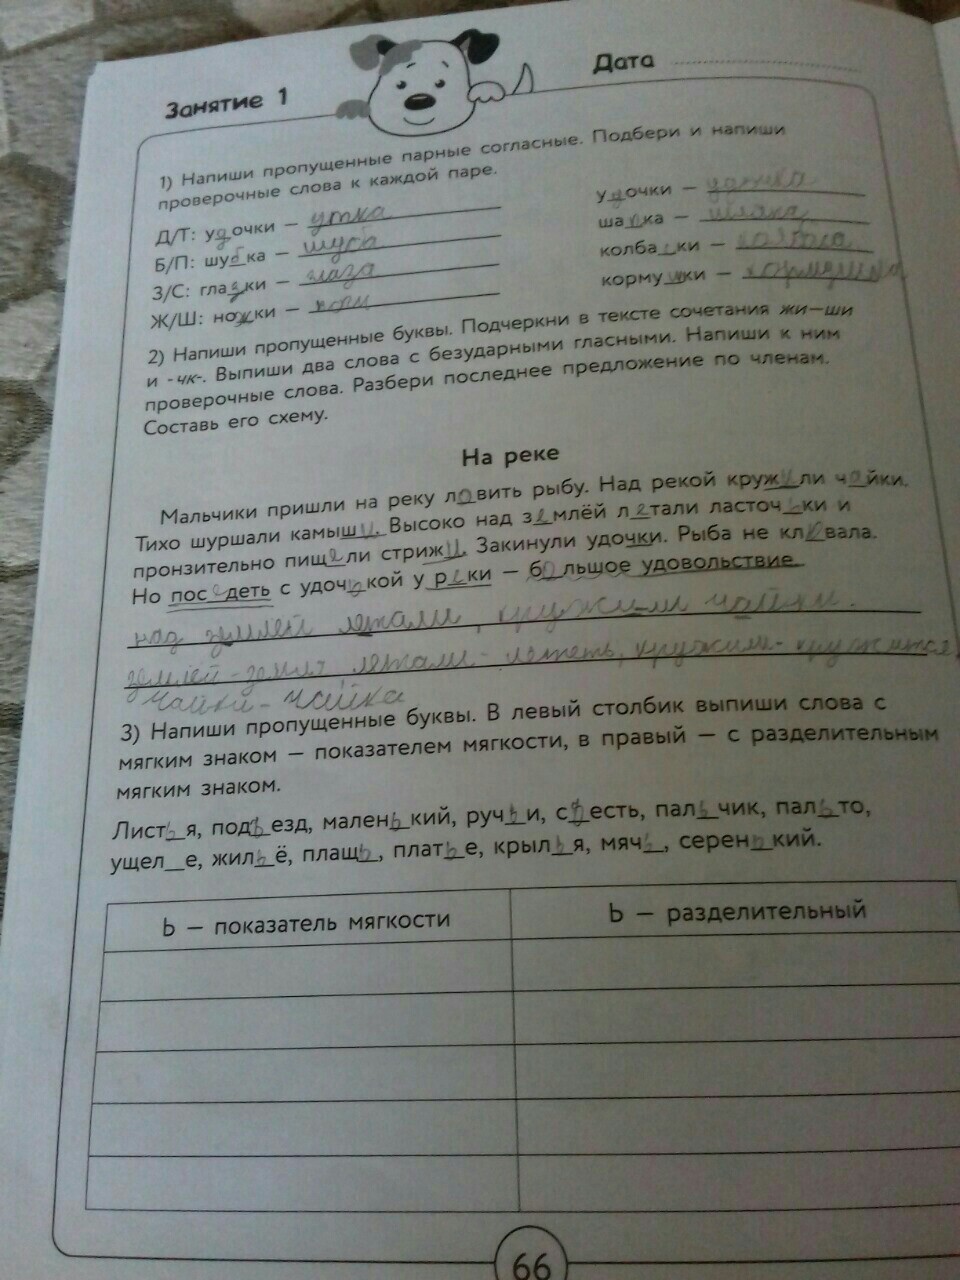 Занятие 1
Дата
1) Напиши пропущенные парные согласные. Подбери и напиши
проверочные слова к каждой паре.
Д/Т: удочки — утка
удочки — удочка
Б/П: шубка — шуба
шапка —
З/С: глазки — глаза
колба_ки — колбаса
Ж/Ш: ножки —
кормушки — кормушка
2) Напиши пропущенные буквы. Подчеркни в тексте сочетания жи—ши
и -чк-. Выпиши два слова с безударными гласными. Напиши к ним
проверочные слова. Разбери последнее предложение по членам.
Составь его схему.
На реке
Мальчики пришли на реку ловить рыбу. Над рекой кружили чайки.
Тихо шуршали камыши. Высоко над землёй летали ласточьки и
пронзительно пищали стрижи. Закинули удочки. Рыба не клевала.
Но посидеть с удочькой у реки — большое удовольствие.
над землей летали, кружили чайки.
землей - земля летали - лететь, кружили - кружится
чайки - чайка
3) Напиши пропущенные буквы. В левый столбик выпиши слова с
мягким знаком — показателем мягкости, в правый — с разделительным
мягким знаком.
Листья, подъезд, маленький, ручьи, съесть, пальчик, пальто,
ущел_е, жильё, плащь, платье, крылья, мячь, серенький.
Ь — показатель мягкости
Ь — разделительный
66